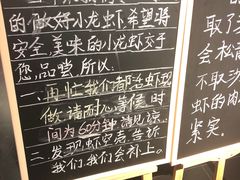 的做好小龙虾,希望将
安全,美味的小龙虾交于
您品尝,所以:
一、再忙我们都活虾现
做,请耐心等候,时
间为60分钟,请见谅,
二、发现虾空壳告诉
我们,我们会补上。
取了
会松
不取沙
虾的肉
紧实。